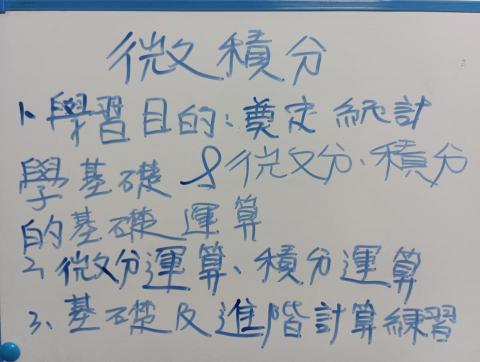 微積分
1、學習目的:奠定統計
學基礎 & 微分、積分
的基礎運算
2、微分運算、積分運算
3、基礎及進階計算練習